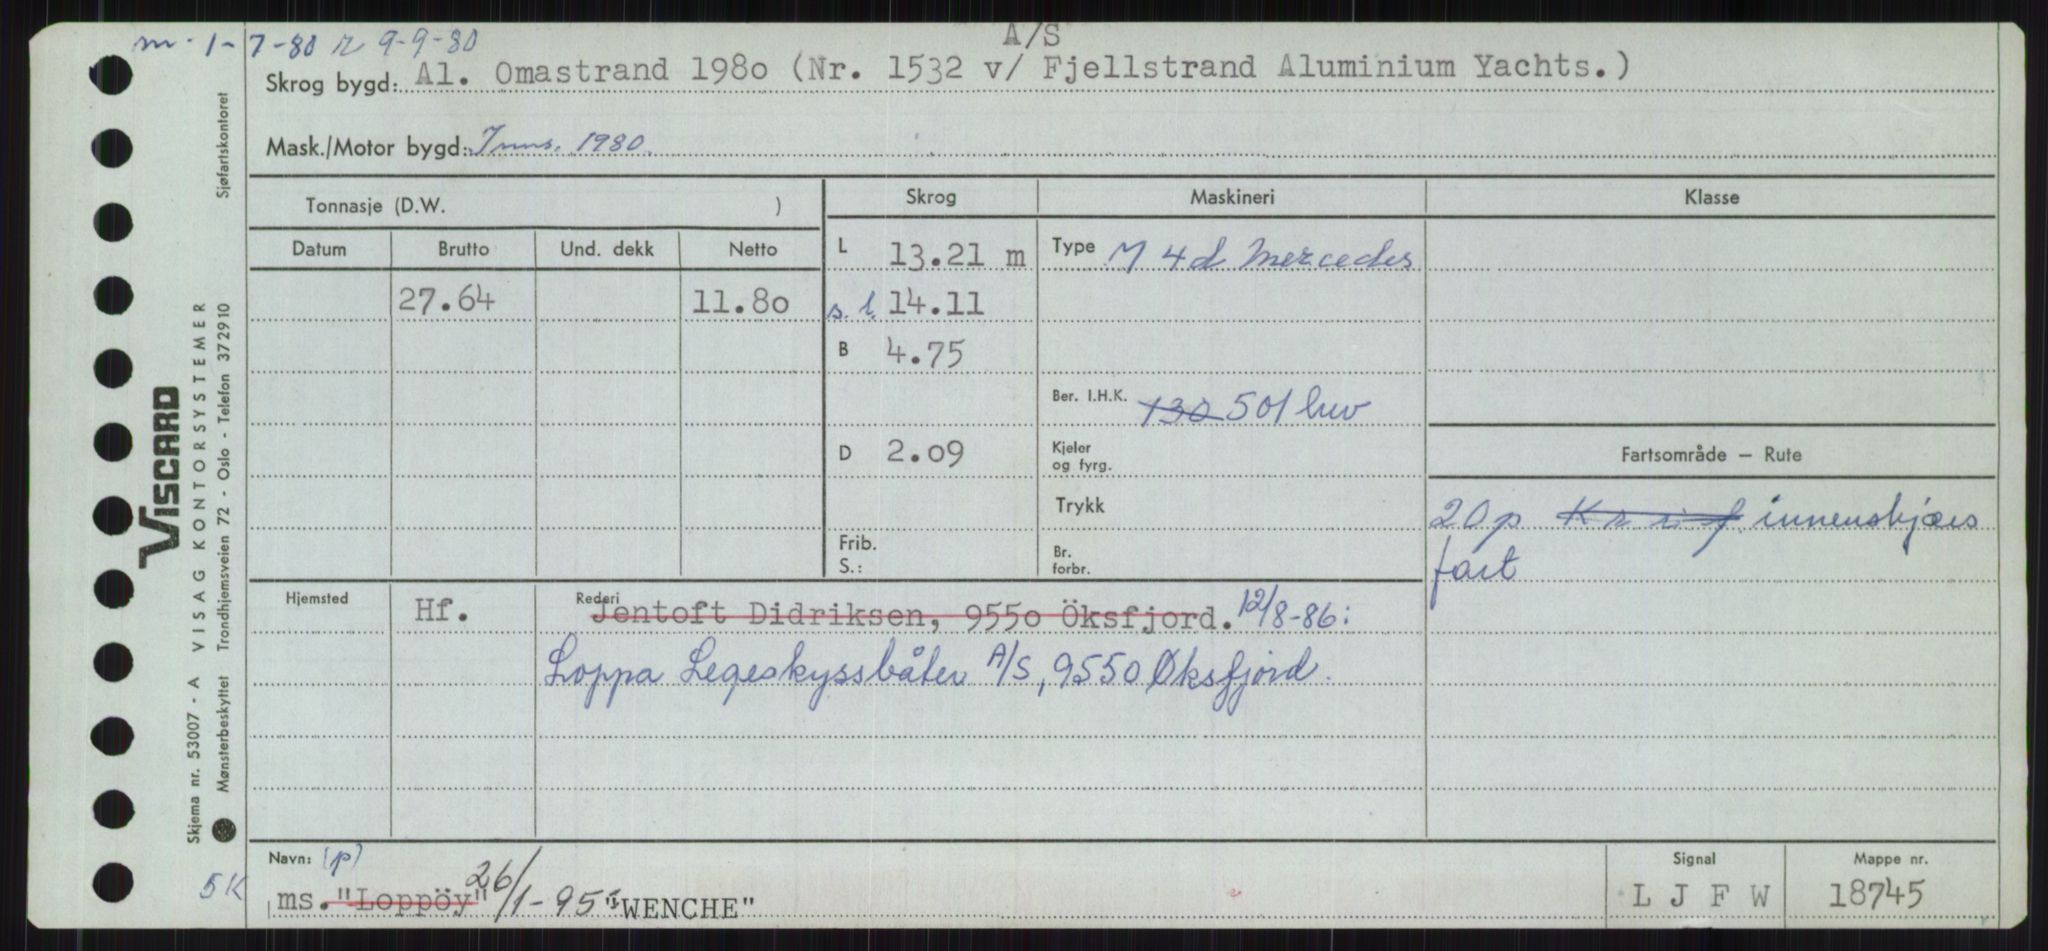 m - 1 - 7 - 80 r 9-9-80
A/S
Skrog bygd: Al. Omastrand 1980 (Nr. 1532 v/ Fjellstrand Aluminium Yachts.)
Mask./Motor bygd: 1980.
Tonnasje (D.W. ) Skrog Maskineri Klasse
Datum Brutto Und. dekk Netto L 13.21 m Type M 4d Mercedes
27.64 11.80 s.l. 14.11
B 4.75
Ber. I.H.K. 130 501 hw
D 2.09 Kjeler og fyrg. Fartsområde – Rute
Trykk 20p K r i f innenskjærs
Frib. S.: Br. forbr. fart
Hjemsted Hf. Rederi Jentoft Didriksen, 9550 Öksfjord. 12/8-86:
Loppa Legeskyssbåten A/S, 9550 Øksfjord.
Navn: (p) Signal Mappe nr.
5K ms. "Loppöy" 26/1-95 "WENCHE" L J F W 18745
VISCARD
Skjema nr. 53007 - A VISAG KONTORSYSTEMER
Mønsterbeskyttet Trondhjemsveien 72 - Oslo - Telefon 372910 Sjøfartskontoret